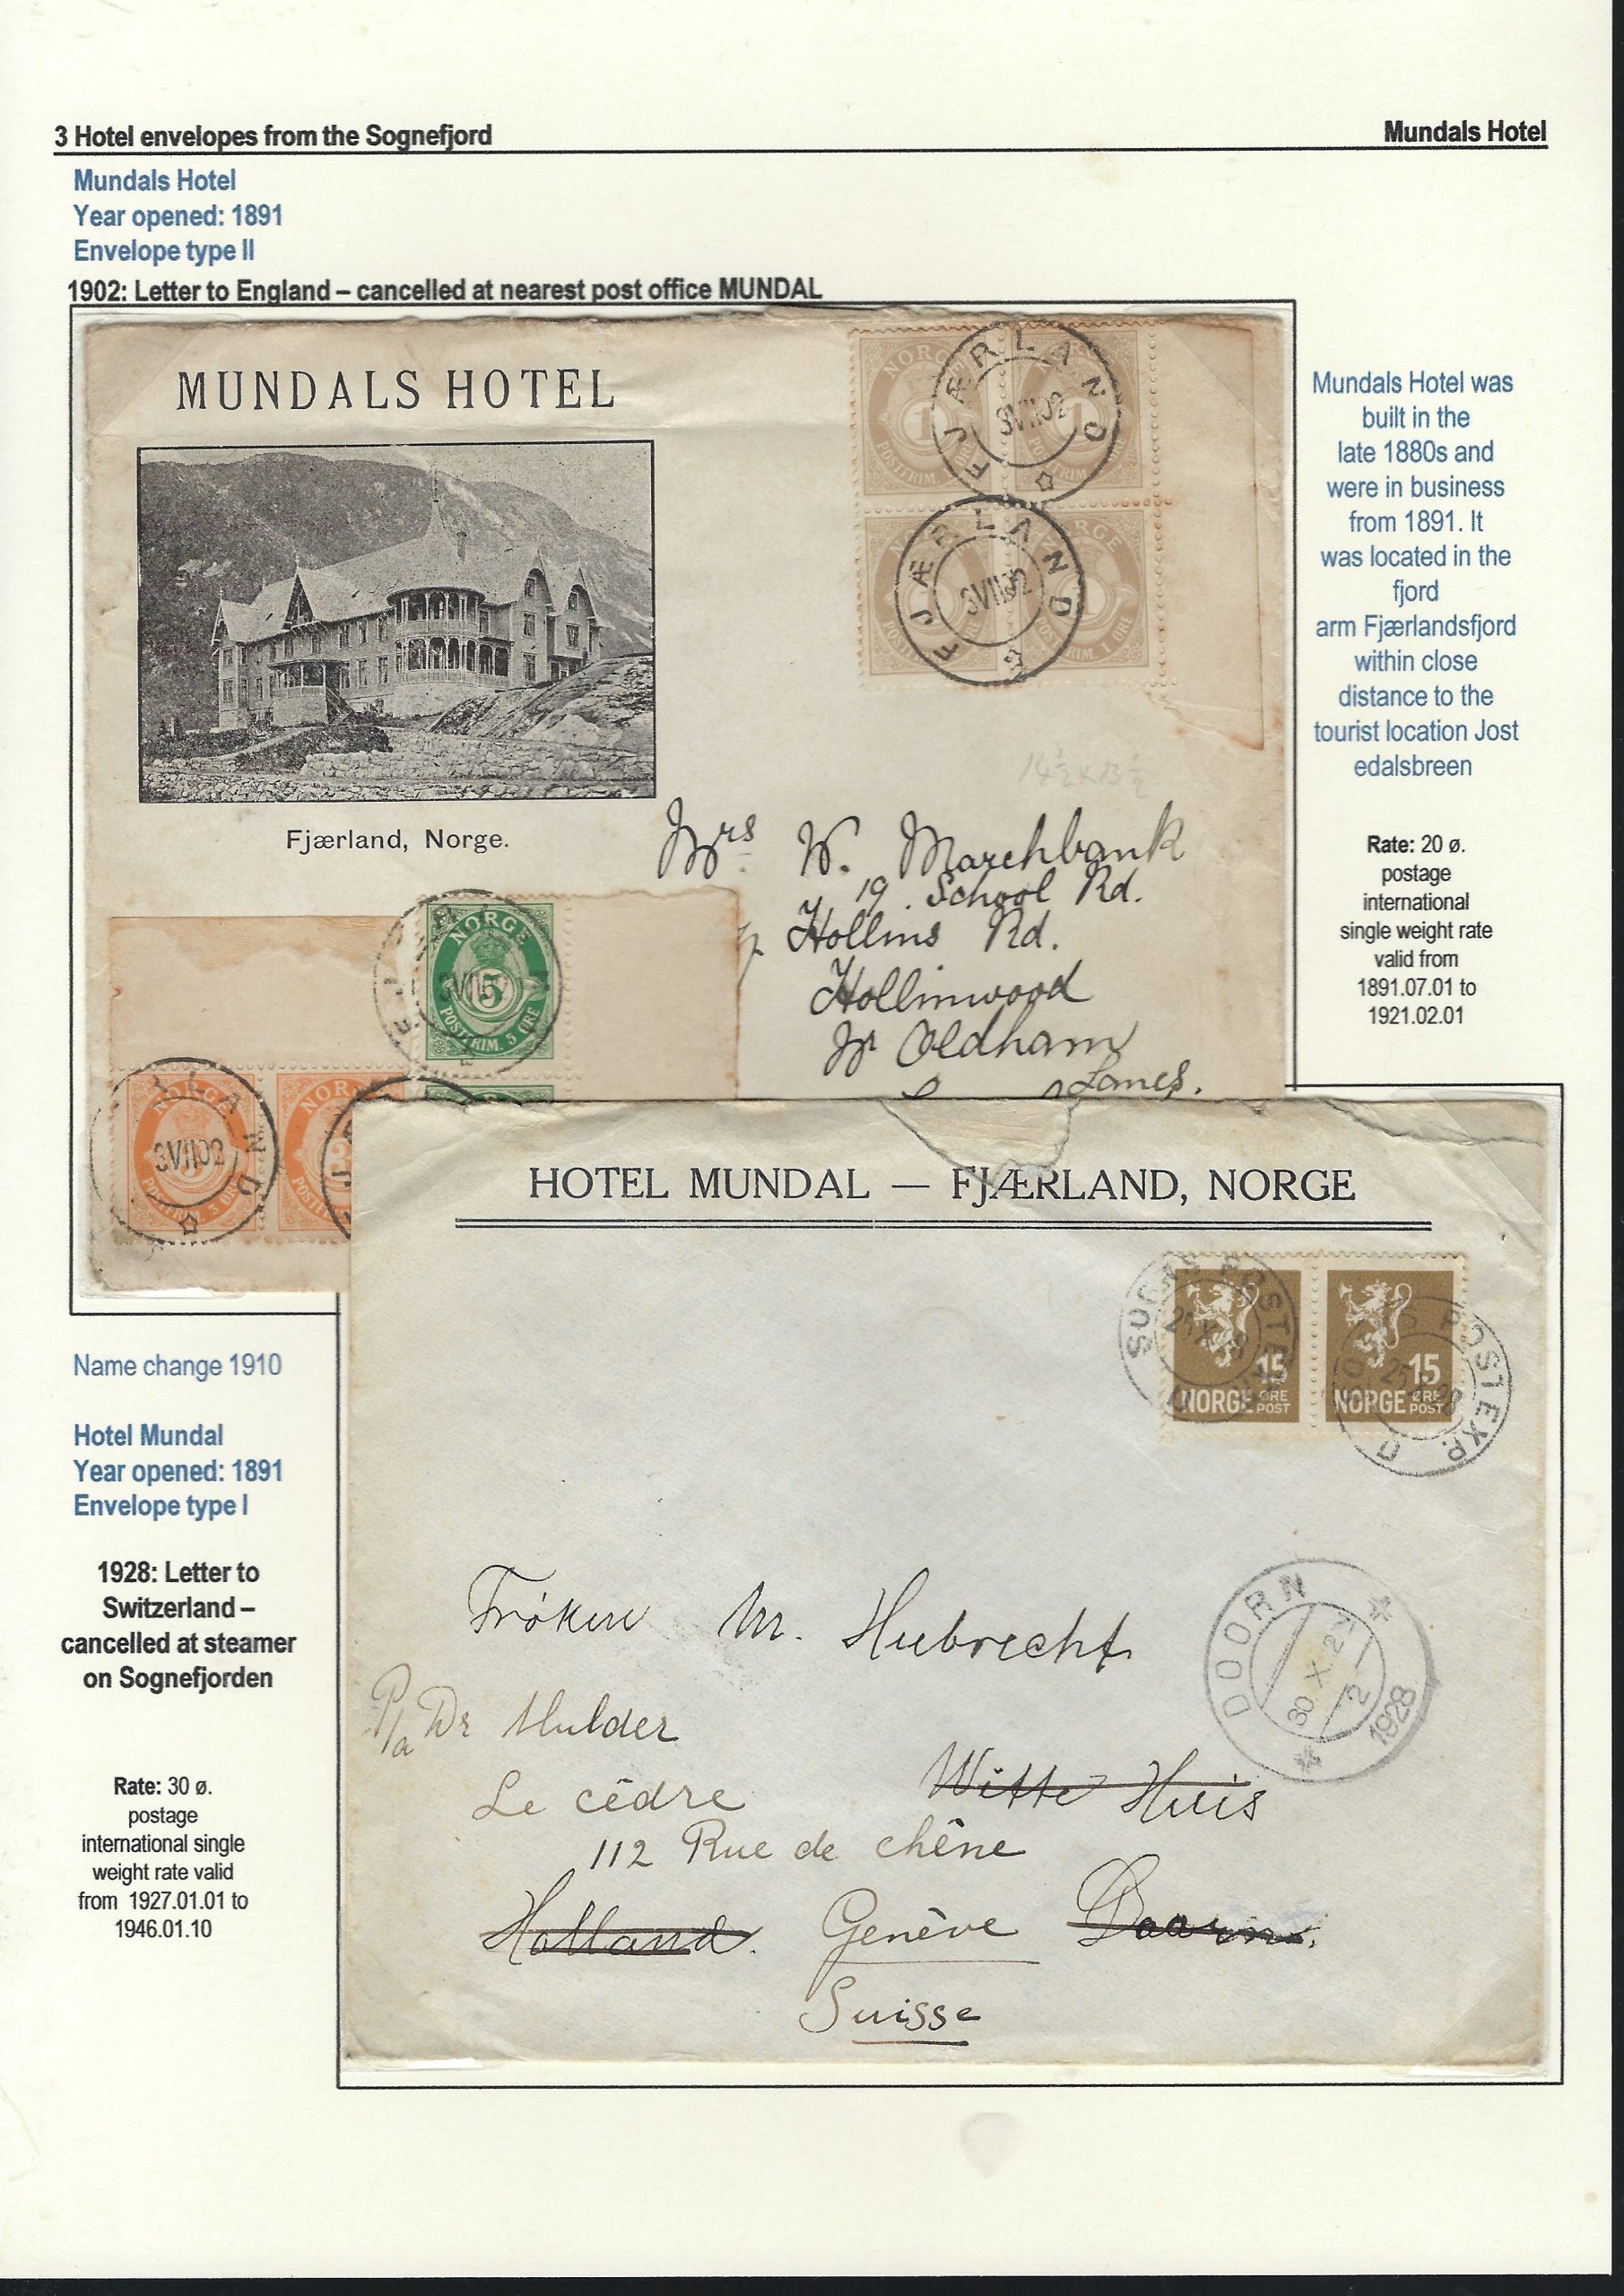 3 Hotel envelopes from the Sognefjord
Mundals Hotel
Mundals Hotel
Year opened: 1891
Envelope type II
1902: Letter to England – cancelled at nearest post office MUNDAL
MUNDALS HOTEL
Fjærland, Norge.
NORGE
POSTFRIM. 1 ØRE
FJÆRLAND
3VII02
FJÆRLAND
3VII02
14½x13½
Mrs W. Marchbank
19. School Rd.
Hollins Rd.
Hollinwood
Nr Oldham
Lancs.
NORGE
5
POSTFRIM. 5 ØRE
NORGE
3VII02
Mundals Hotel was
built in the
late 1880s and
were in business
from 1891. It
was located in the
fjord
arm Fjærlandsfjord
within close
distance to the
tourist location Jost
edalsbreen
Rate: 20 ø.
postage
international
single weight rate
valid from
1891.07.01 to
1921.02.01
Name change 1910
Hotel Mundal
Year opened: 1891
Envelope type I
1928: Letter to
Switzerland –
cancelled at steamer
on Sognefjorden
Rate: 30 ø.
postage
international single
weight rate valid
from 1927.01.01 to
1946.01.10
HOTEL MUNDAL — FJÆRLAND, NORGE
15
NORGE ØRE POST
15
NORGE ØRE POST
SOGNS POSTEXP. D
Frøken M. Hubrecht
P/a Dr Mulder
Le cèdre
Witte Huis
112 Rue de chêne
Holland. Genève Doorn.
Suisse
DOORN
30 X 27
2
1928